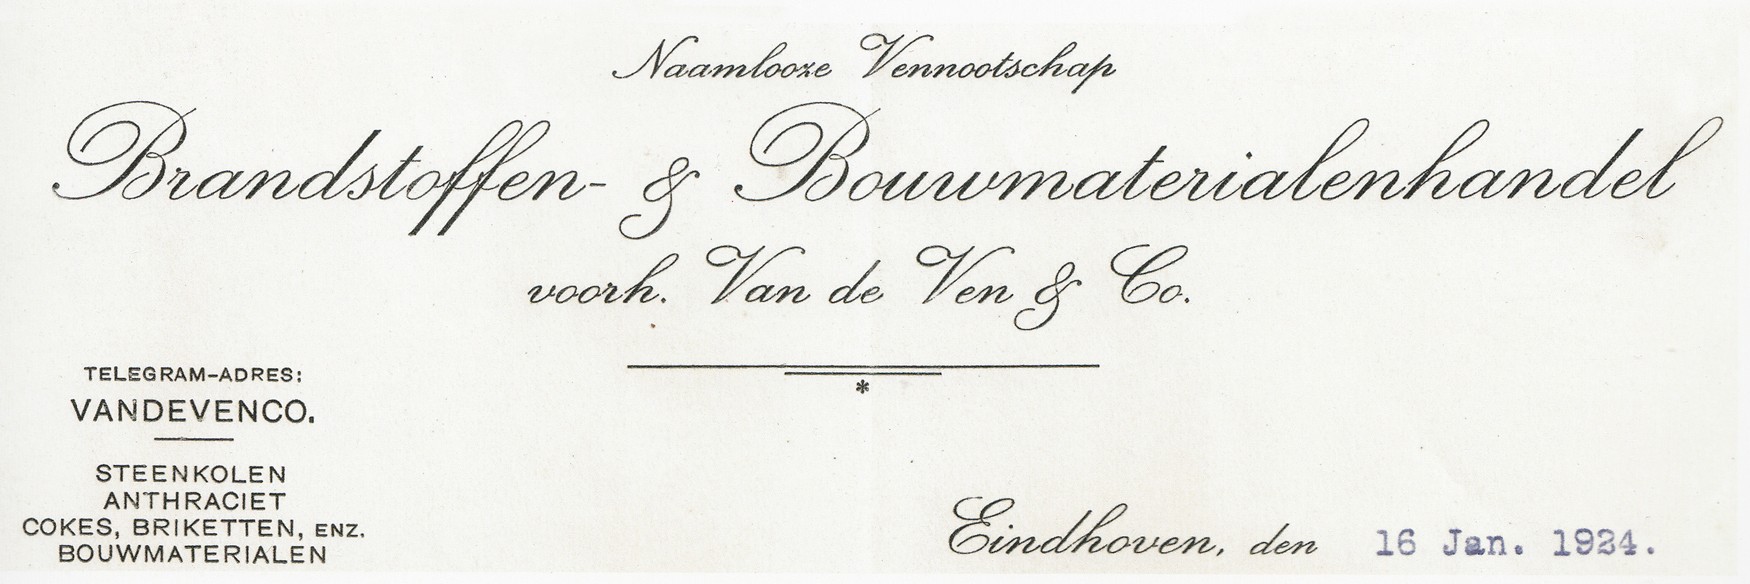 Naamlooze Vennootschap
Brandstoffen- & Bouwmaterialenhandel
voorh. Van de Ven & Co.
*
TELEGRAM-ADRES:
VANDEVENCO.
STEENKOLEN
ANTHRACIET
COKES, BRIKETTEN, ENZ.
BOUWMATERIALEN
Eindhoven, den 16 Jan. 1924.